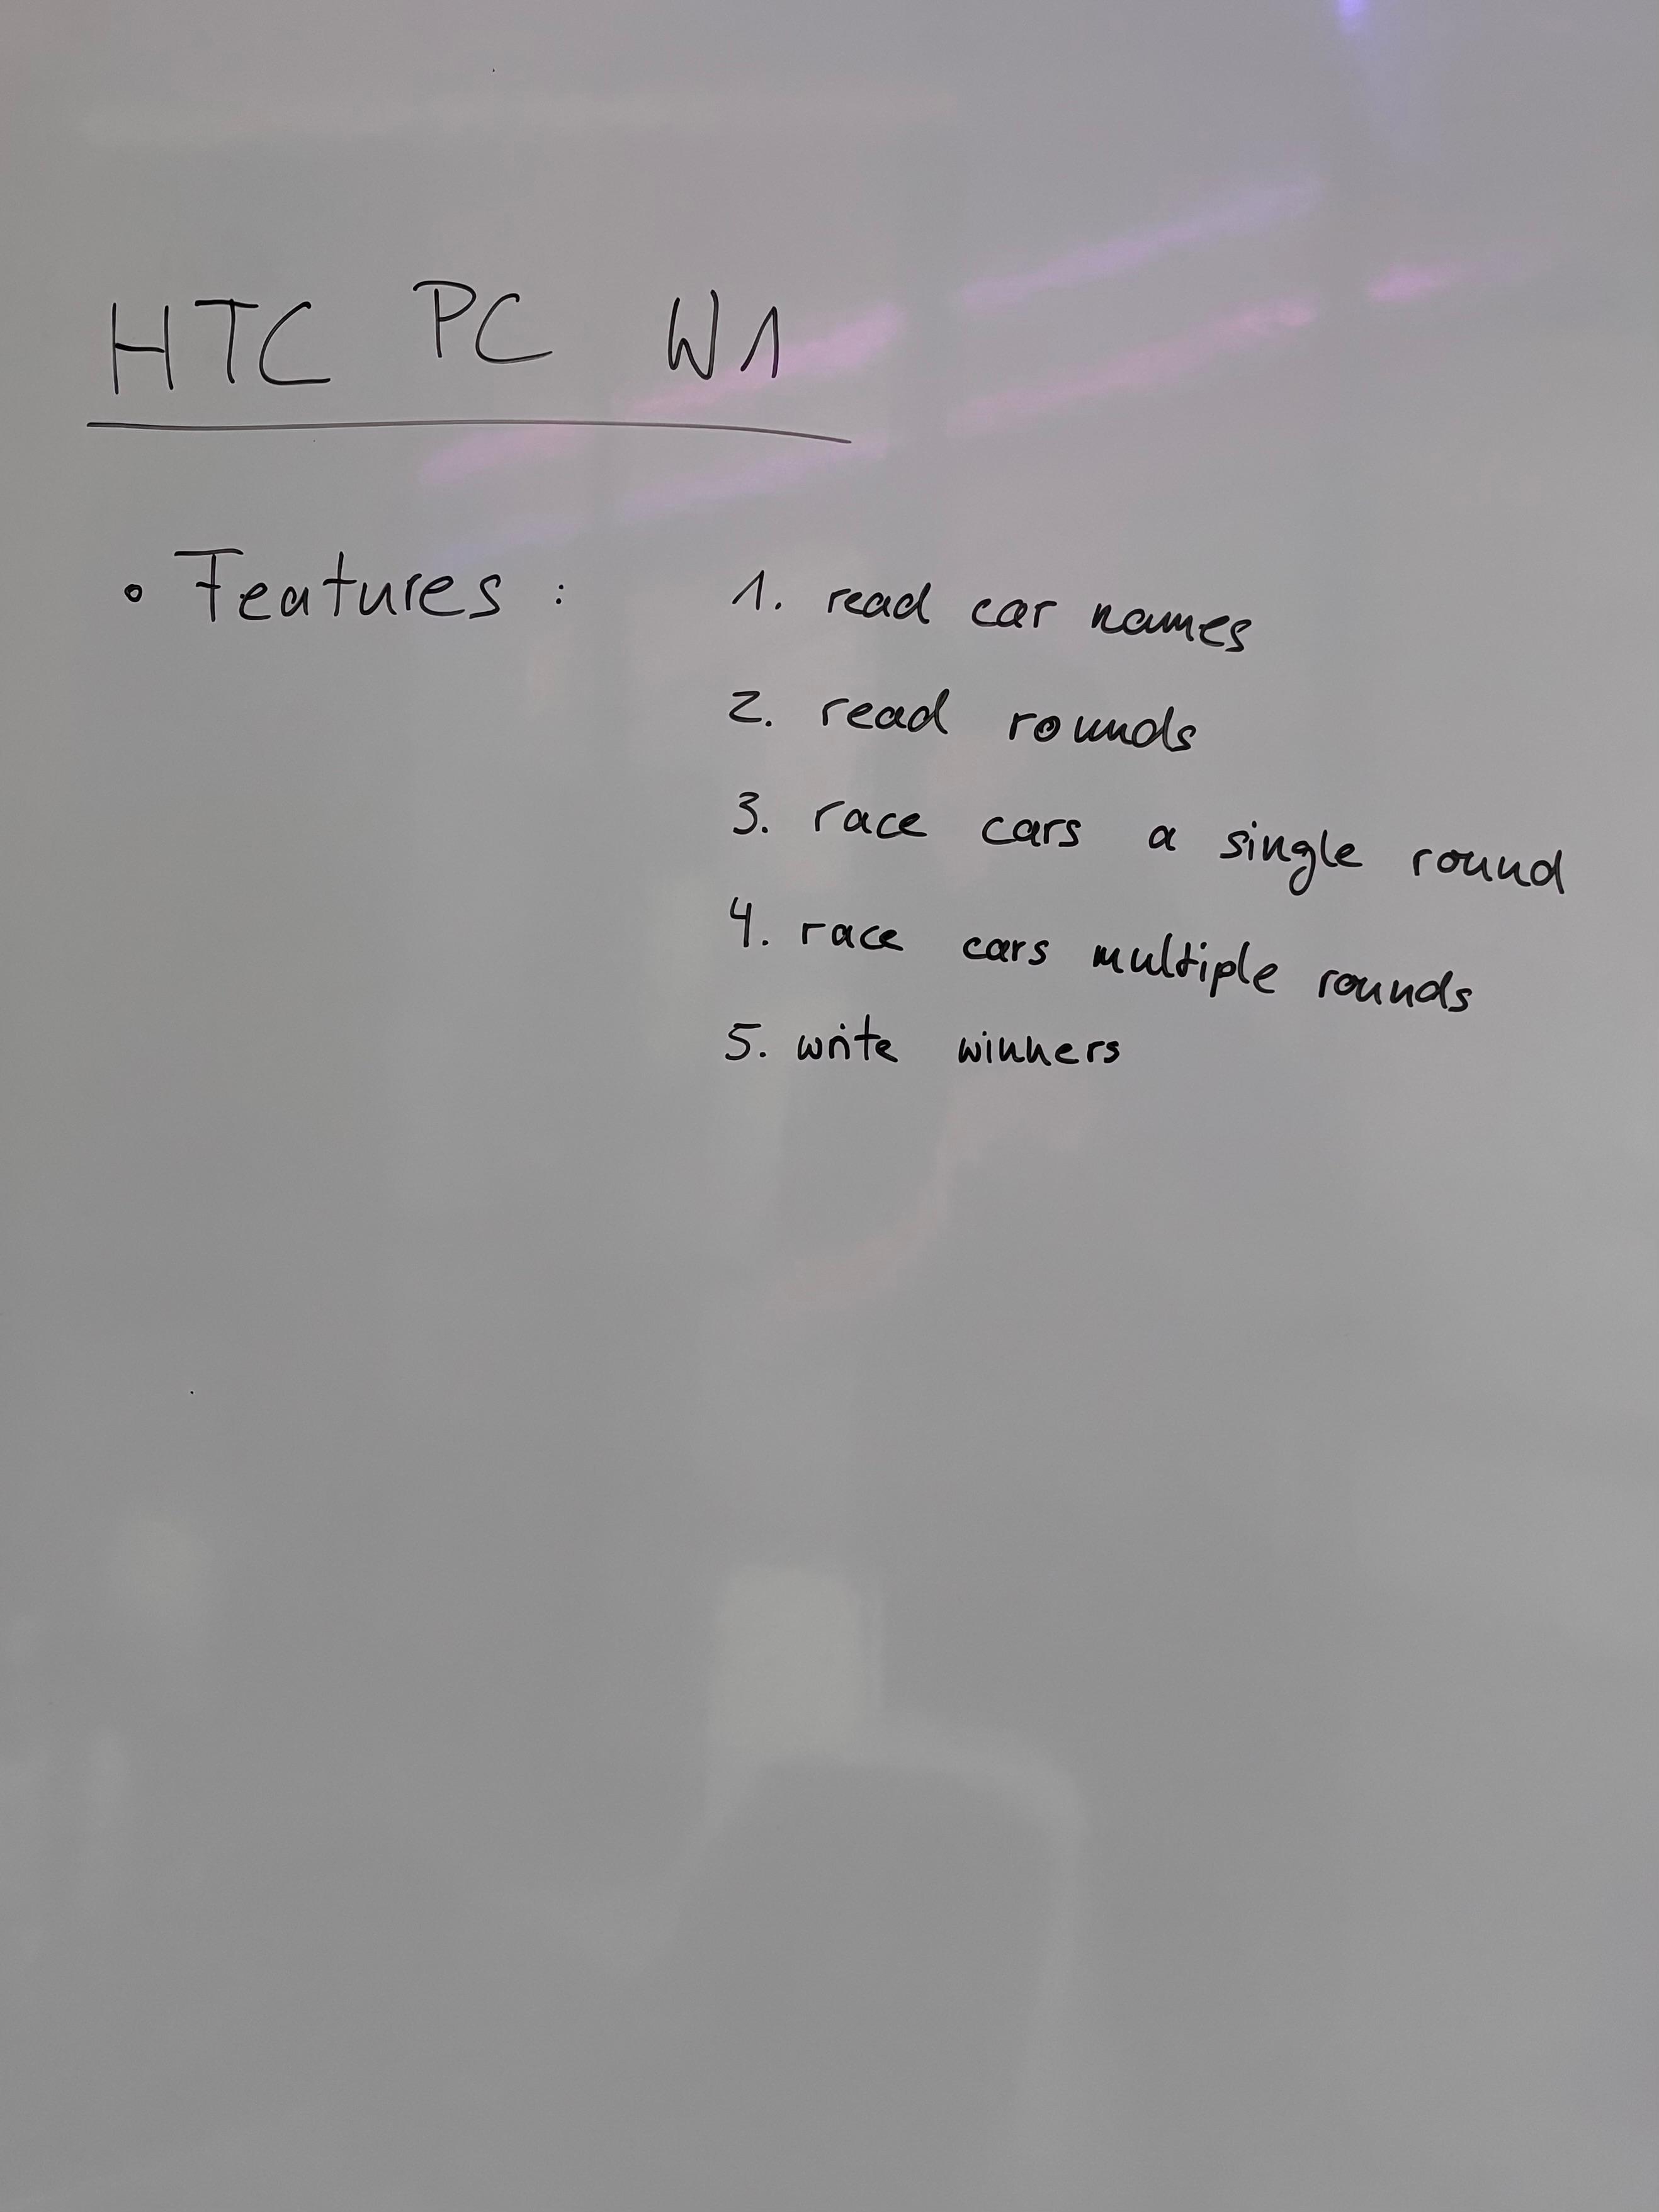 HTC PC W1
• Features : 1. read car names
2. read rounds
3. race cars a single round
4. race cars multiple rounds
5. write winners